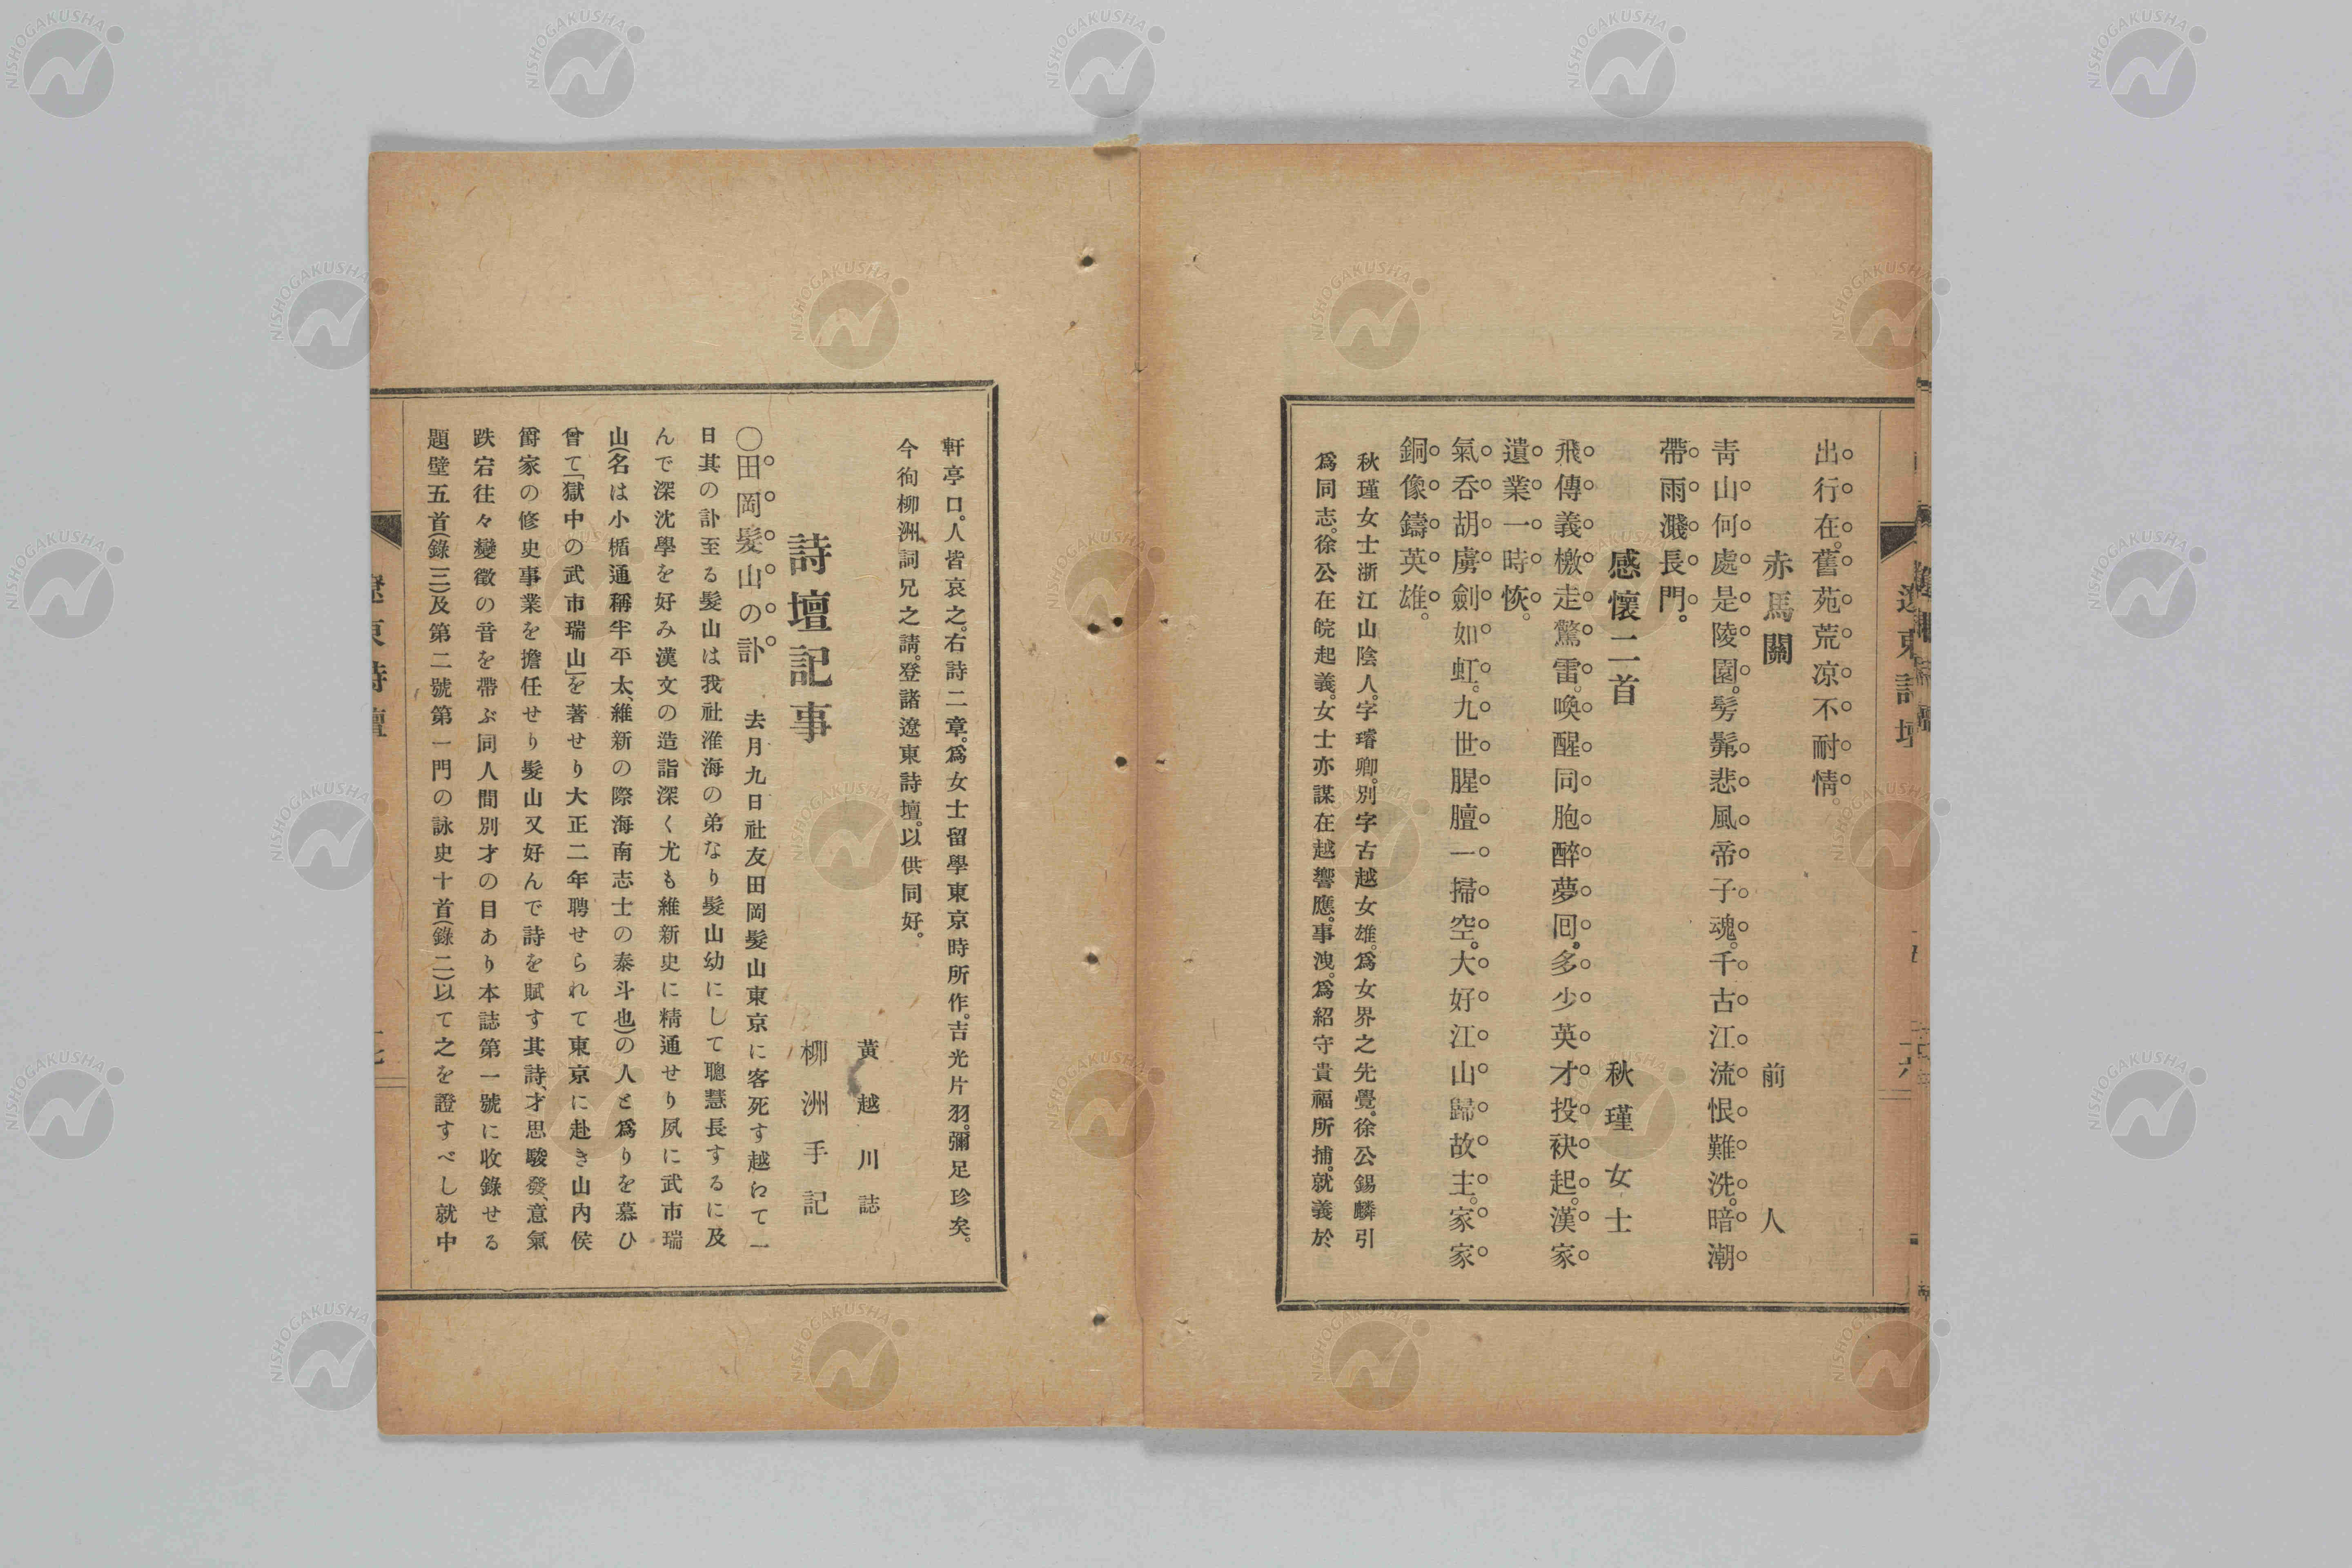 遼東詩壇
出行在。舊苑荒凉不耐情。
赤馬關 前人
靑山何處是陵園。髣髴悲風帝子魂。千古江流恨難洗。暗潮
帶雨濺長門。
感懷二首 秋瑾女士
飛傳義檄走驚雷。喚醒同胞醉夢回。多少英才投袂起。漢家
遺業一時恢。
氣呑胡虜劍如虹。九世腥膻一掃空。大好江山歸故主。家家
銅像鑄英雄。
秋瑾女士浙江山陰人。字璿卿。別字古越女雄。爲女界之先覺。徐公錫麟引
爲同志。徐公在皖起義。女士亦謀在越響應。事洩。爲紹守貴福所捕。就義於
軒亭口。人皆哀之。右詩二章。爲女士留學東京時所作。吉光片羽。彌足珍矣。
今徇柳洲詞兄之請。登諸遼東詩壇。以供同好。
黃越川誌
詩壇記事 柳洲手記
〇田岡髮山の訃 去月九日社友田岡髮山東京に客死す越わて一
日其の訃至る髮山は我社淮海の弟なり髮山幼にして聰慧長するに及
んで深沈學を好み漢文の造詣深く尤も維新史に精通せり夙に武市瑞
山(名は小楯通稱半平太、維新の際海南志士の泰斗也)の人と爲りを慕ひ
曾て「獄中の武市瑞山」を著せり大正二年聘せられて東京に赴き山內侯
爵家の修史事業を擔任せり髮山又好んで詩を賦す其詩、才思駿發、意氣
跌宕往々變徵の音を帶ぶ同人間別才の目あり本誌第一號に收錄せる
題壁五首(錄三)及第二號第一門の詠史十首(錄二)以て之を證すべし就中
遼東詩壇
NISHOGAKUSHA